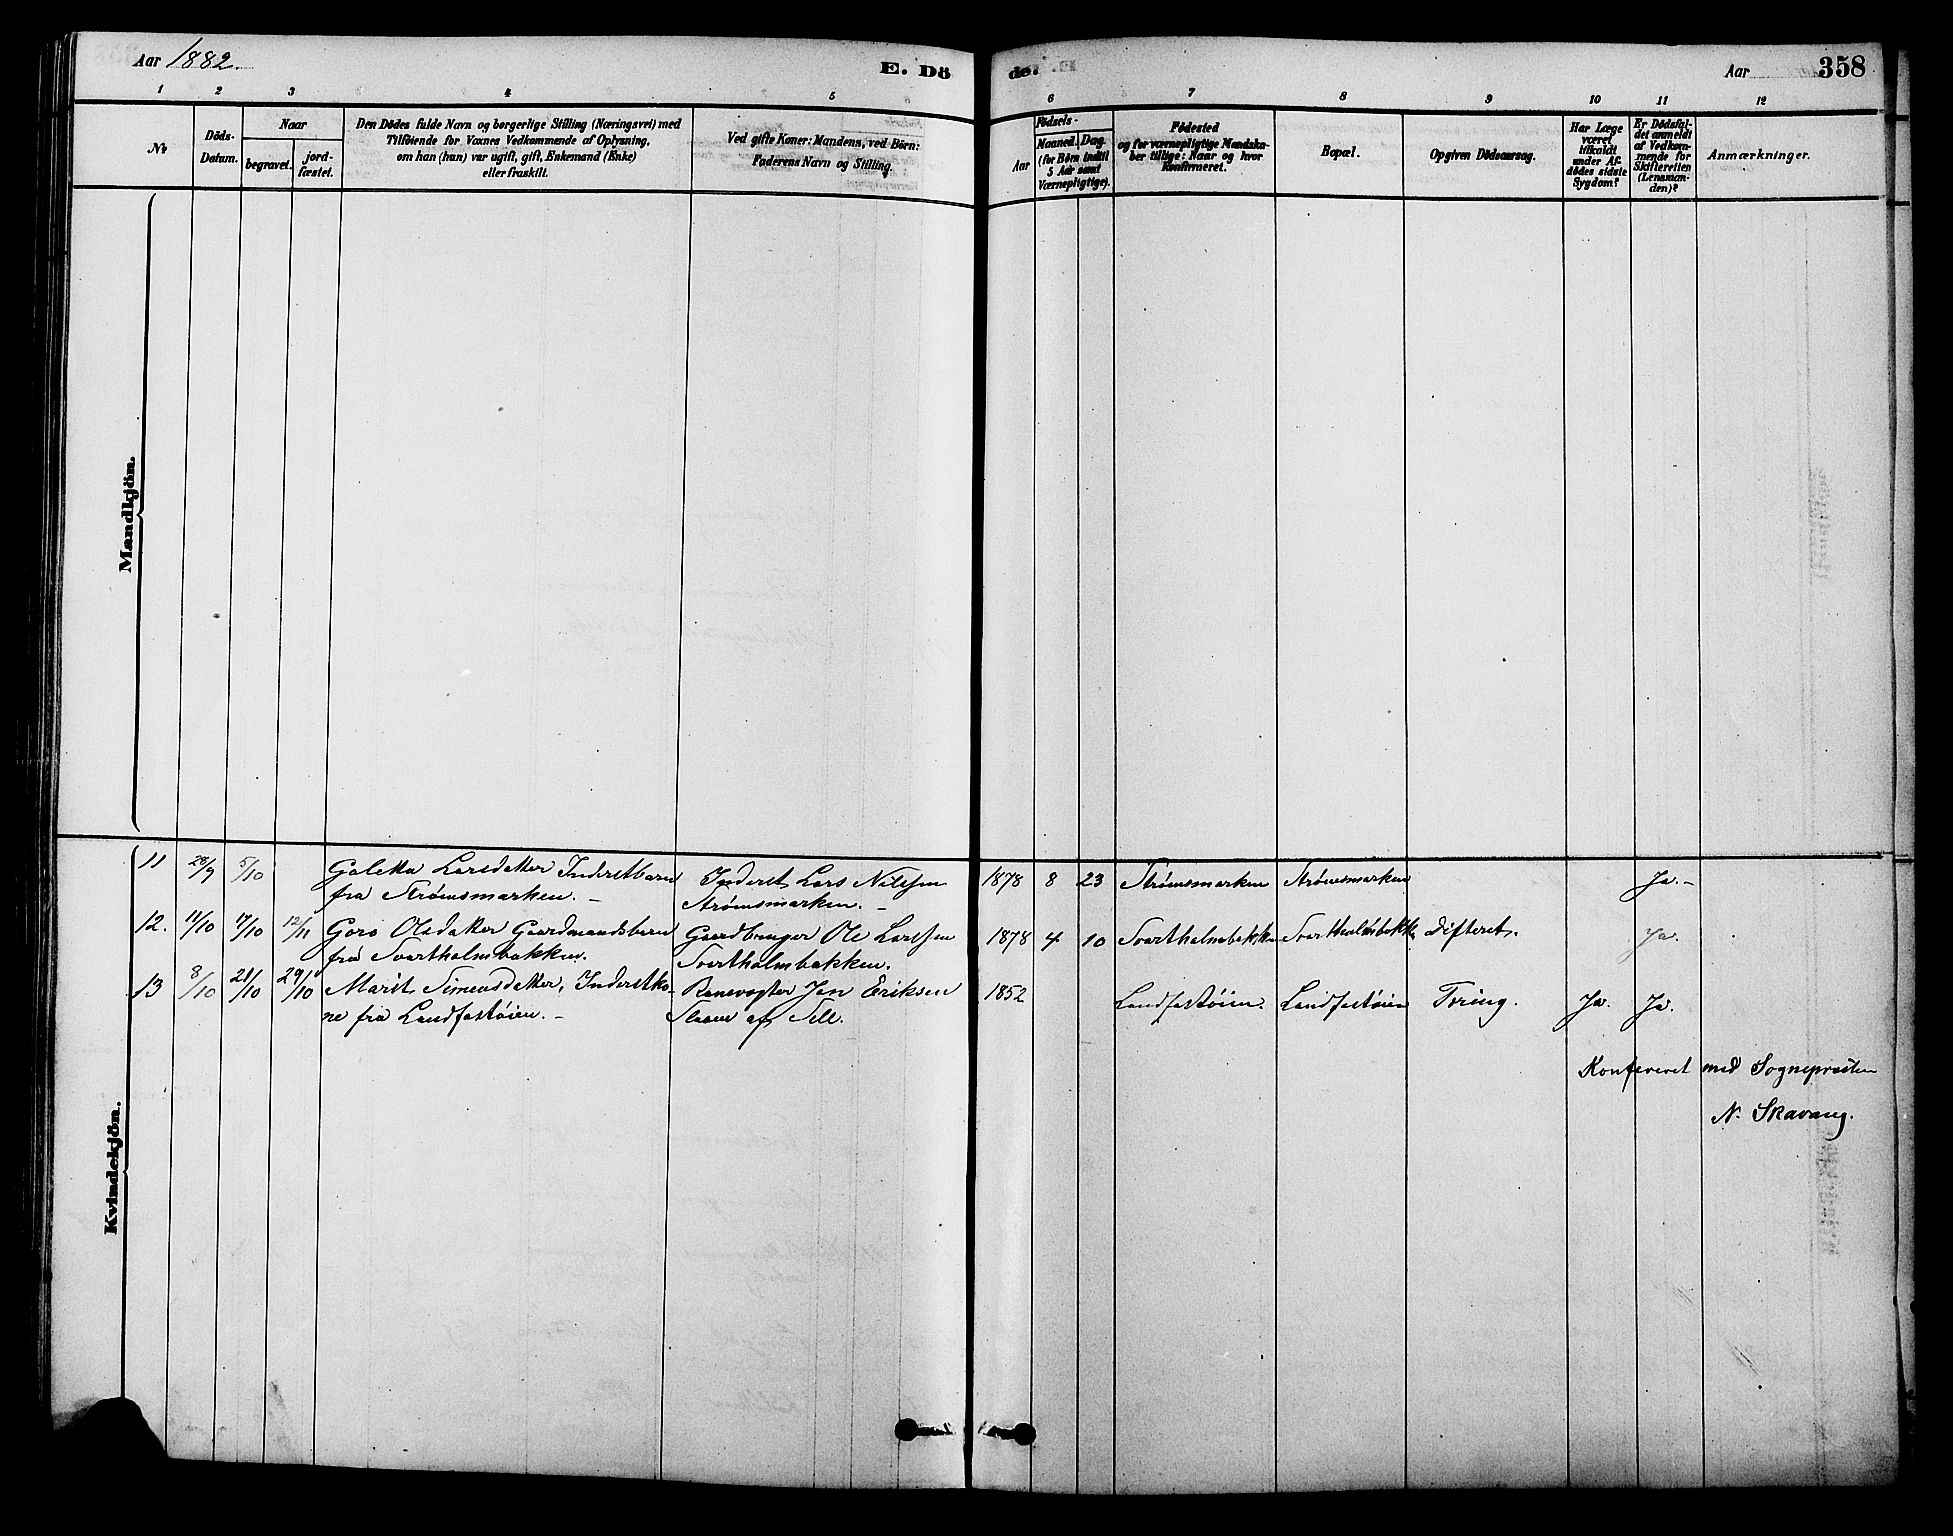 Aar 1882.
E. Dö
de.
Aar
358
1 2 3 4 5 6 7 8 9 10 11 12
No
Döds-
Datum.
Naar
begravet.
jord-
fæstet.
Den Dödes fulde Navn og borgerlige Stilling (Næringsvei) med
Tilföiende for Voxnes Vedkommende af Oplysning,
om han (hun) var ugift, gift, Enkemand (Enke)
eller fraskilt.
Ved gifte Koner: Mandens, ved Börn:
Faderens Navn og Stilling.
Födsels-
Aar
Maaned.
Dag.
(for Börn indtil
5 Aar samt
Værnepligtige).
Födested
og for værnepligtige Mandska-
ber tillige: Naar og hvor
Konfirmeret.
Bopæl.
Opgiven Dödsaarsag.
Har Læge
været
tilkaldt
under Af-
dödes sidste
Sygdom?
Er Dödsfal-
det anmeldt
af Vedkom-
mende for
Skifteretten
(Lensman-
den)?
Anmærkninger.
Mandkjön.
Kvindekjön.
11 28/9 5/10 Galetta Larsdatter Inderstbarn Inderst Lars Nilssen 1878 8 23 Strømsmarken Strømsmarken Ja.-
fra Strømsmarken. - Strømsmarken. -
12. 11/10 17/10 12/11 Goro Olsdatter Gaardmandsbarn Gaardbruger Ole Larssen 1878 4 10 Svartholmbakken Svartholmbakk Difterit. Ja.
fra Svartholmbakken. Svartholmbakken.
13 8/10 21/10 29/10 Marit Simensdatter, Inderstko- Banevogter Jon Eriksen 1852 Landfastøien. Landfastøien Tæring. Ja. Ja.
ne fra Landfastøien. - af Sell.
Konfereret med Sognepresten
N. Skavang.